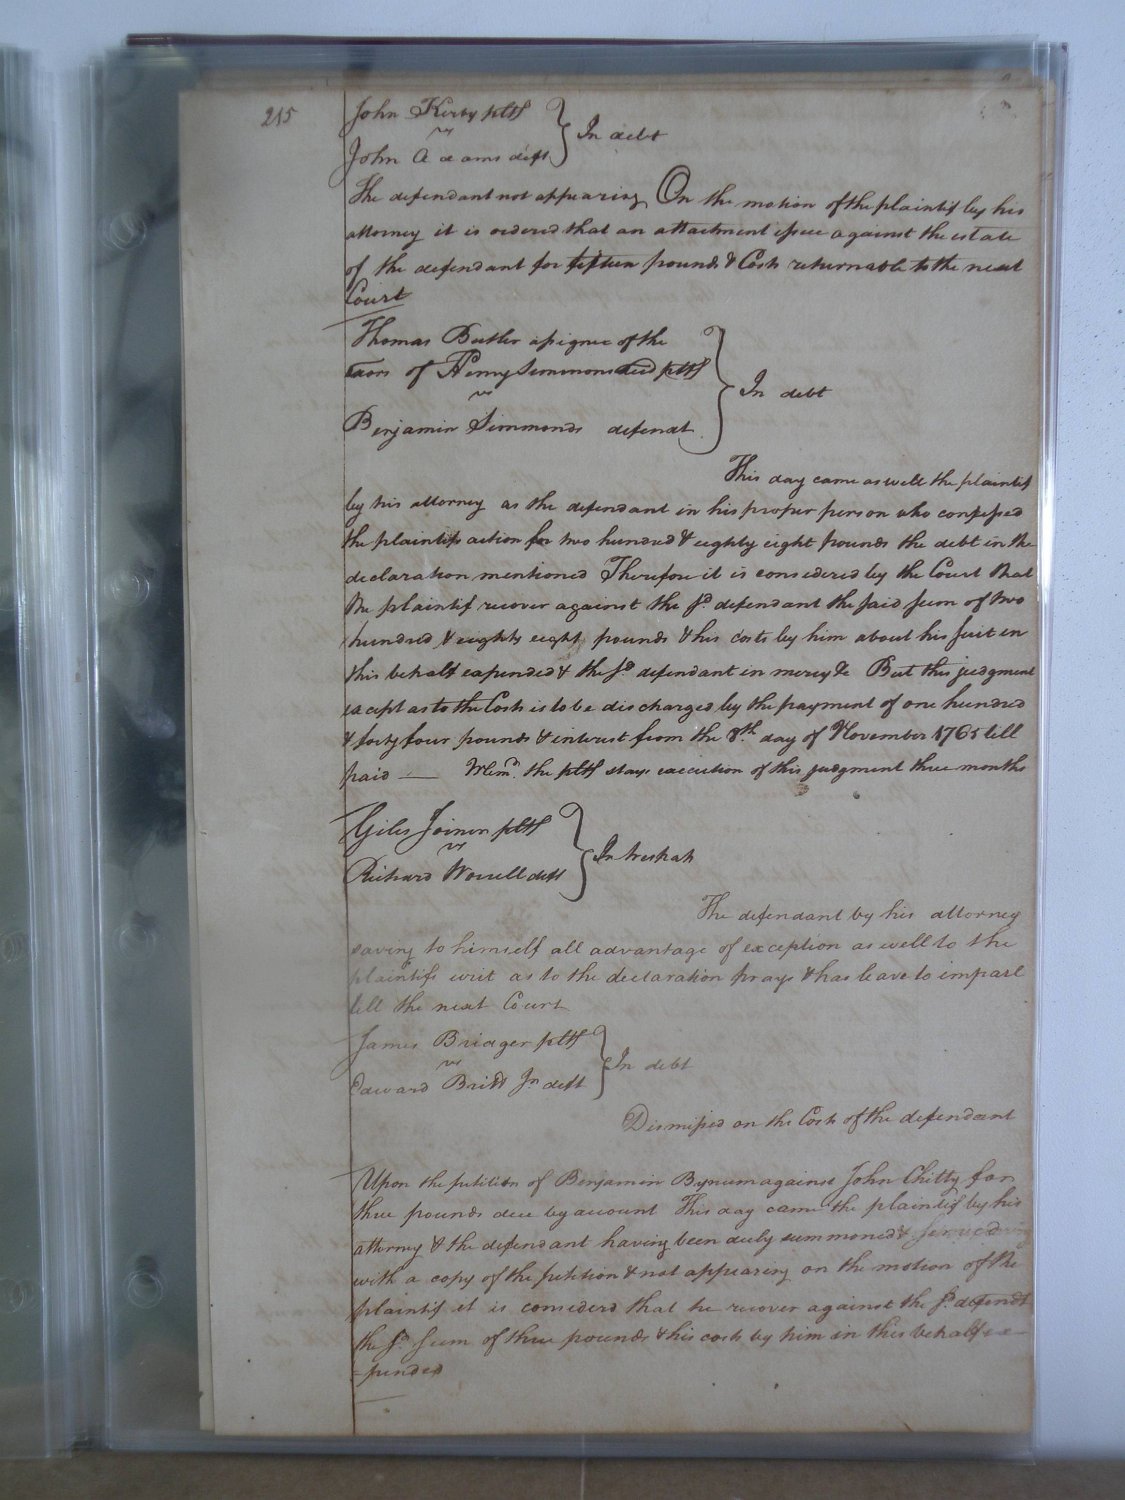 215
John Kirby pltf
vs
John Adams deft
In debt
The defendant not appearing On the motion of the plaintif by his
attorney it is ordered that an attachment issue against the estate
of the defendant for fifteen pounds & Costs returnable to the next
Court
Thomas Butler assignee of the
Exors of Henry Simmons decd pltf
vs
Benjamin Simmonds defendt
In debt
This day came as well the plaintif
by his attorney as the defendant in his proper person who confessed
the plaintifs action for two hundred & eighty eight pounds the debt in the
declaration mentioned Therefore it is considered by the Court that
the plaintif recover against the sd. defendant the said sum of two
hundred & eighty eight pounds & his costs by him about his suit in
this behalf expended & the sd. defendant in mercy &c But this judgment
except as to the Costs is to be discharged by the payment of one hundred
& forty four pounds & interest from the 8th. day of November 1765 till
paid — Memd. the pltf stays execution of this judgment three months
Giles Joiner pltf
vs
Richard Worrell deft
In trespass
The defendant by his attorney
saving to himself all advantage of exception as well to the
plaintifs writ as to the declaration prays & has leave to imparl
till the next Court
James Bridger pltf
vs
Edward Britt Jr deft
In debt
Dismissed on the Costs of the defendant
Upon the petition of Benjamin Bynum against John Chitty for
three pounds due by account This day came the plaintif by his
attorney & the defendant having been duly summoned & served
with a copy of the petition & not appearing on the motion of the
plaintif it is considerd that he recover against the sd. defendt
the sd. sum of three pounds & his costs by him in this behalf ex-
=pended